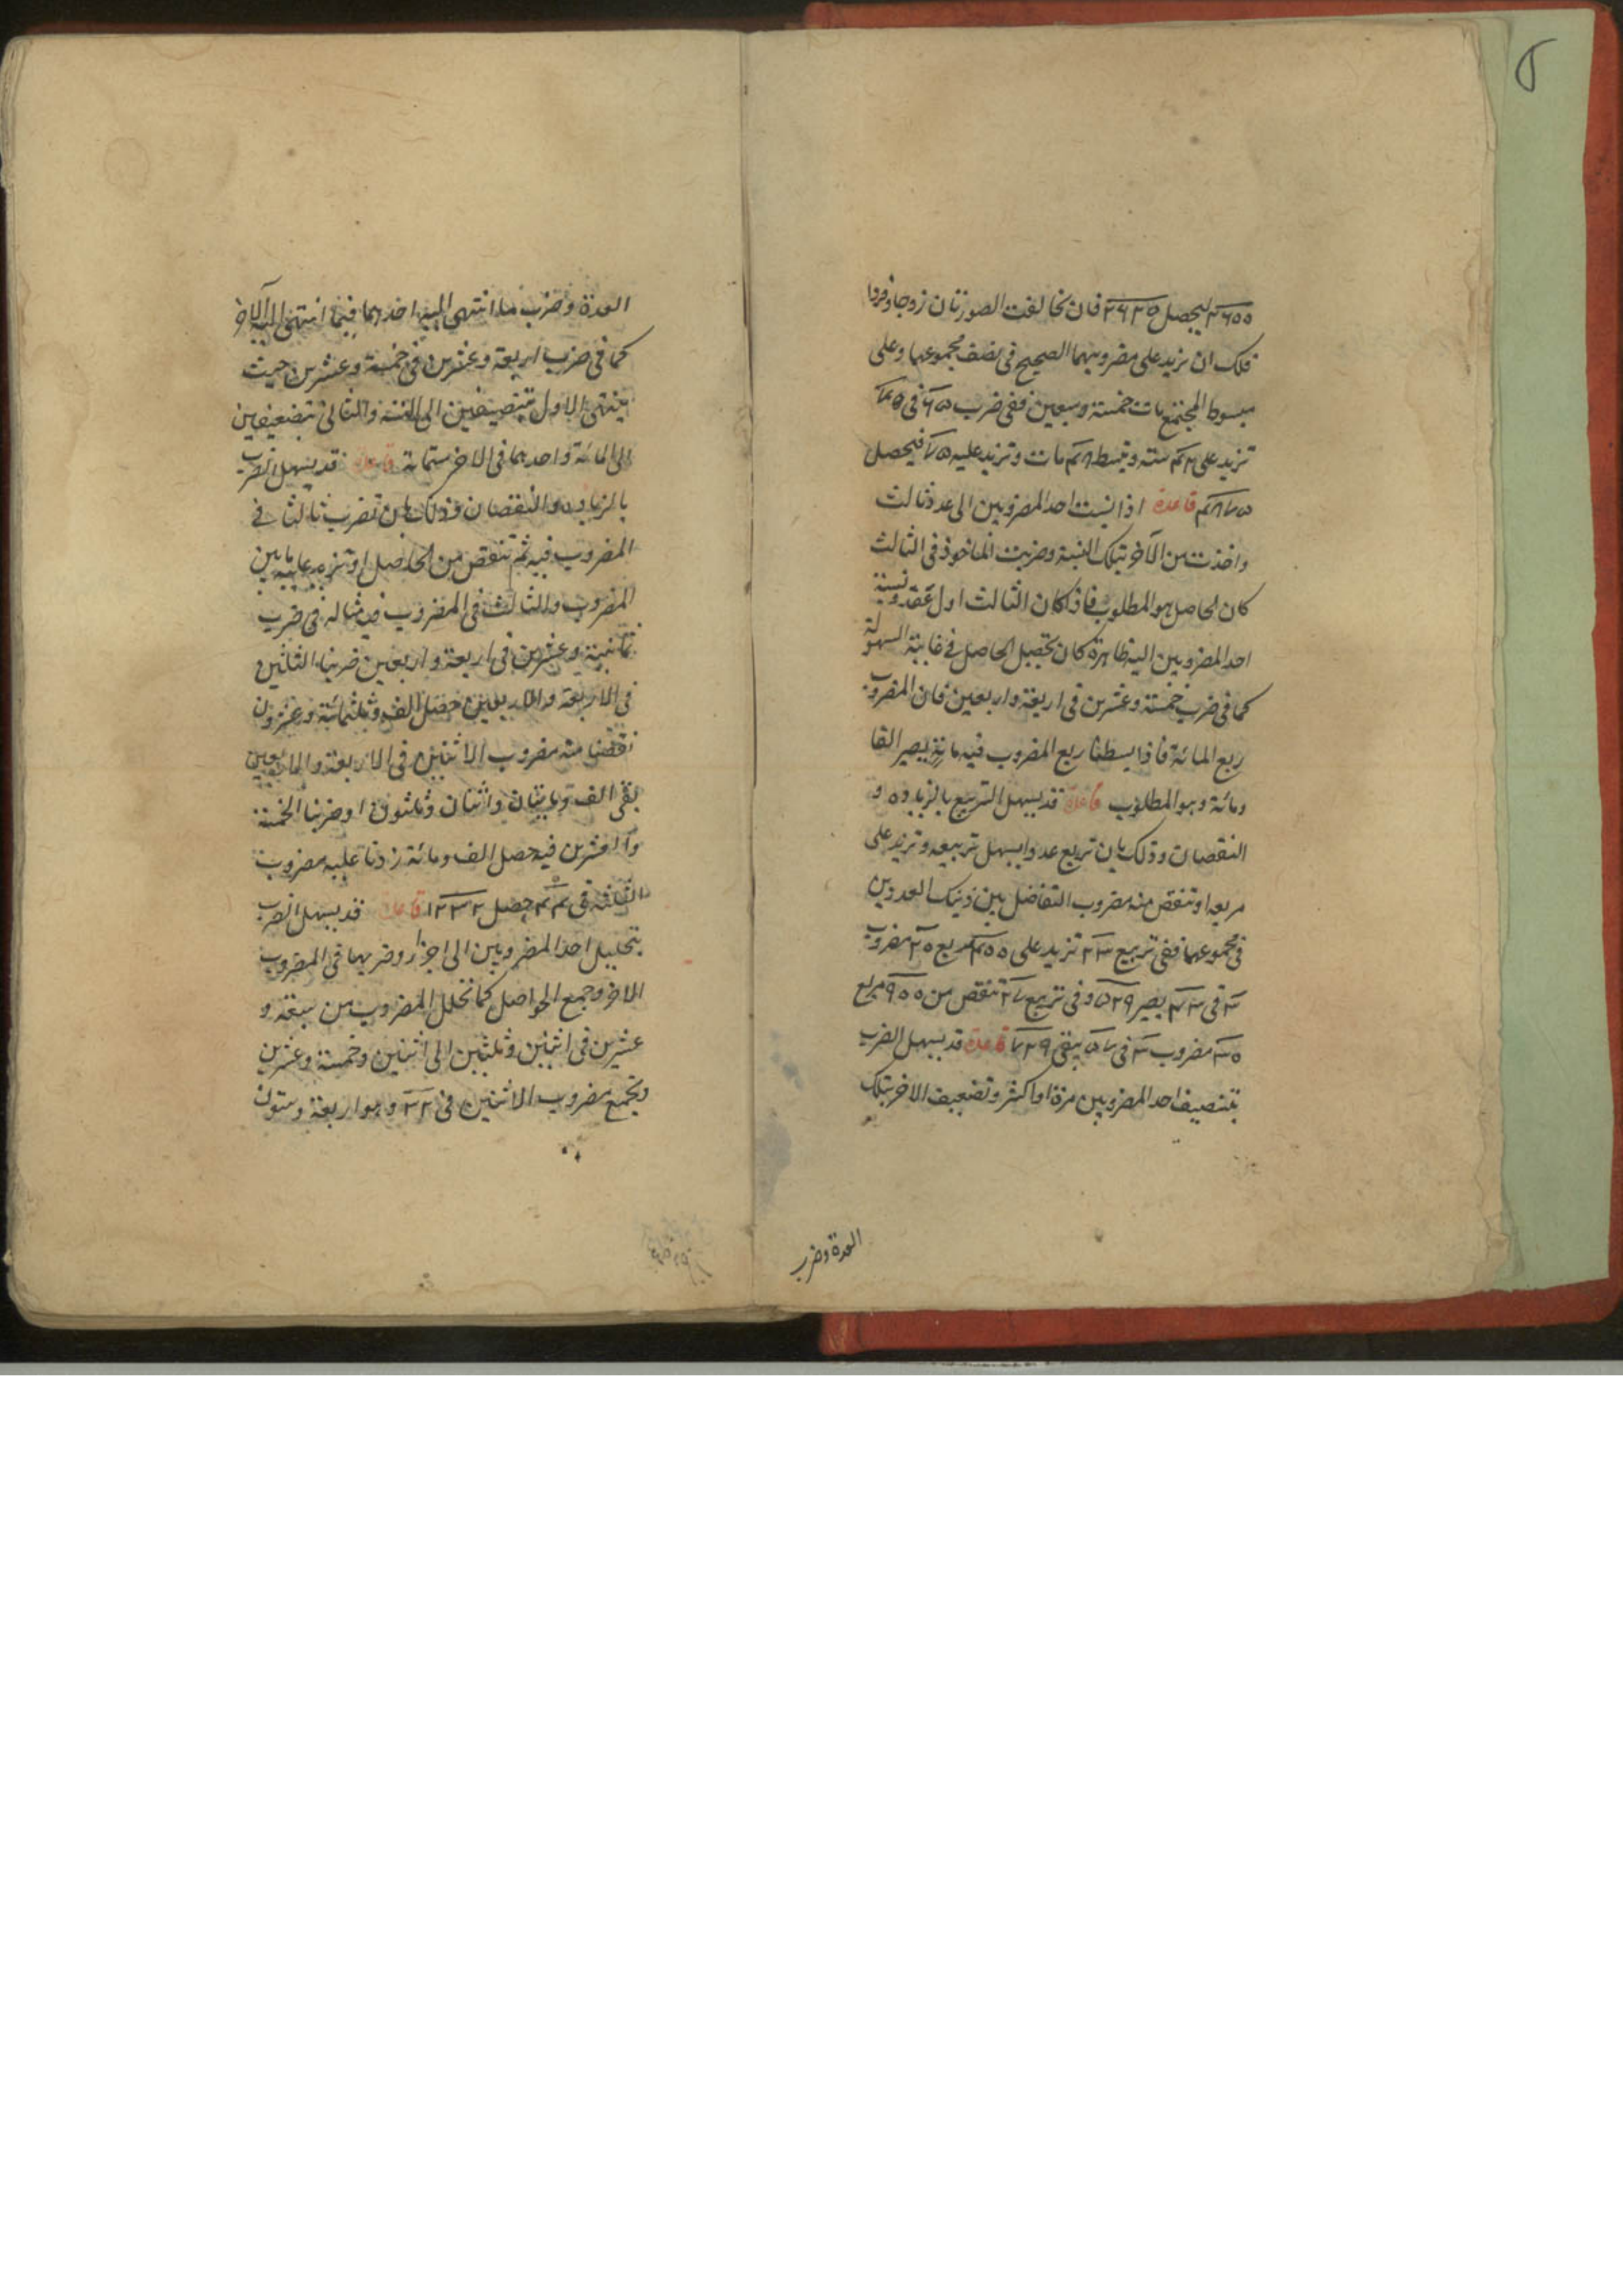 ۵
۳۶۰۰ ليحصل ۳۶۲۵ فان تخالفت الصورتان زوجا وفردا
فلك ان تزيد على مضروبهما الصحيح في نصف مجموعهما وعلى
مبسوط المجتمع مات خمسة وسبعين ففى ضرب ۶۵ فى ۷۵
تزيد على ۴۲ ستة وتبسط ۴۸ مات وتزيد عليه ۷۵ فيحصل
۴۸۷۵ قاعدة اذا نسبت احد المضروبين الى عدد ثالث
واخذت من الآخر بتلك النسبة وضربت الماخوذ فى الثالث
كان الحاصل هو المطلوب فاذا كان الثالث اول عقد ونسبة
احد المضروبين اليه ظاهرة كان تحصيل الحاصل فى غاية السهولة
كما فى ضرب خمسة وعشرين فى اربعة واربعين فان المضروب
ربع المائة فاذا بسطنا ربع المضروب فيه مائة يصير الفا
ومائة وهو المطلوب قاعدة قد يسهل التربيع بالزيادة و
النقصان وذلك بان تربع عددا يسهل تربيعه وتزيد على
مربعه او تنقص منه مضروب التفاضل بين ذينك العددين
فى مجموعهما ففى تربيع ۲۳ تزيد على ۴۰۰ مربع ۲۰ مضروب
۳ فى ۴۳ يصير ۵۲۹ وفى تربيع ۲۷ تنقص من ۹۰۰ مربع
۳۰ مضروب ۳ فى ۵۷ يبقى ۷۲۹ قاعدة قد يسهل الضرب
بتنصيف احد المضروبين مرة او اكثر وتضعيف الاخر بتلك
العدة وضرب
العدة وضرب ما انتهى اليه احدهما فيما انتهى اليه الآخر
كما فى ضرب اربعة وعشرين فى خمسة وعشرين حيث
ينتهى الاول بتنصيفين الى الستة والثانى بتضعيفين
الى المائة واحدهما فى الاخر ستمائة قاعدة قد يسهل الضرب
بالزيادة والنقصان وذلك بان تضرب ثالثا فى
المضروب فيه ثم تنقص من الحاصل او تزيد عليه ما بين
المضروب والثالث فى المضروب فيه مثاله فى ضرب
ثمانية وعشرين فى اربعة واربعين ضربنا الثلثين
فى الاربعة والاربعين حصل الف وثلثمائة وعشرون
نقصنا منه مضروب الاثنين فى الاربعة والاربعين
بقى الف ومايتان واثنان وثلثون او ضربنا الخمسة
والعشرين فيه حصل الف ومائة زدنا عليه مضروب
الثلثة فى ۴۴ حصل ۱۲۳۲ قاعدة قد يسهل الضرب
بتحليل احد المضروبين الى اجزاء وضربها فى المضروب
الاخر وجمع الحواصل كما تحلل المضروب من سبعة و
عشرين فى اثنين وثلثين الى اثنين وخمسة وعشرين
وتجمع مضروب الاثنين فى ۳۲ وهو اربعة وستون